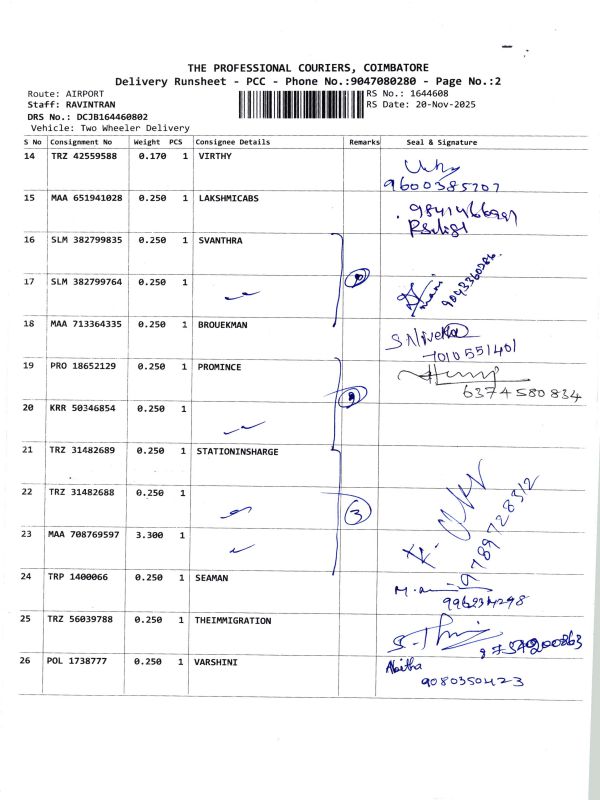 THE PROFESSIONAL COURIERS, COIMBATORE
Delivery Runsheet - PCC - Phone No.:9047080280 - Page No.:2
Route: AIRPORT RS No.: 1644608
Staff: RAVINTRAN RS Date: 20-Nov-2025
DRS No.: DCJB164460802
Vehicle: Two Wheeler Delivery
S No Consignment No Weight PCS Consignee Details Remarks Seal & Signature
14 TRZ 42559588 0.170 1 VIRTHY
9600385707
15 MAA 651941028 0.250 1 LAKSHMICABS
16 SLM 382799835 0.250 1 SVANTHRA
17 SLM 382799764 0.250 1
9043360286
18 MAA 713364335 0.250 1 BROUEKMAN
S Nivetha
7010551401
19 PRO 18652129 0.250 1 PROMINCE
6374580834
20 KRR 50346854 0.250 1
21 TRZ 31482689 0.250 1 STATIONINSHARGE
22 TRZ 31482688 0.250 1
3
9789728312
23 MAA 708769597 3.300 1
24 TRP 1400066 0.250 1 SEAMAN
25 TRZ 56039788 0.250 1 THEIMMIGRATION
26 POL 1738777 0.250 1 VARSHINI
9080350423